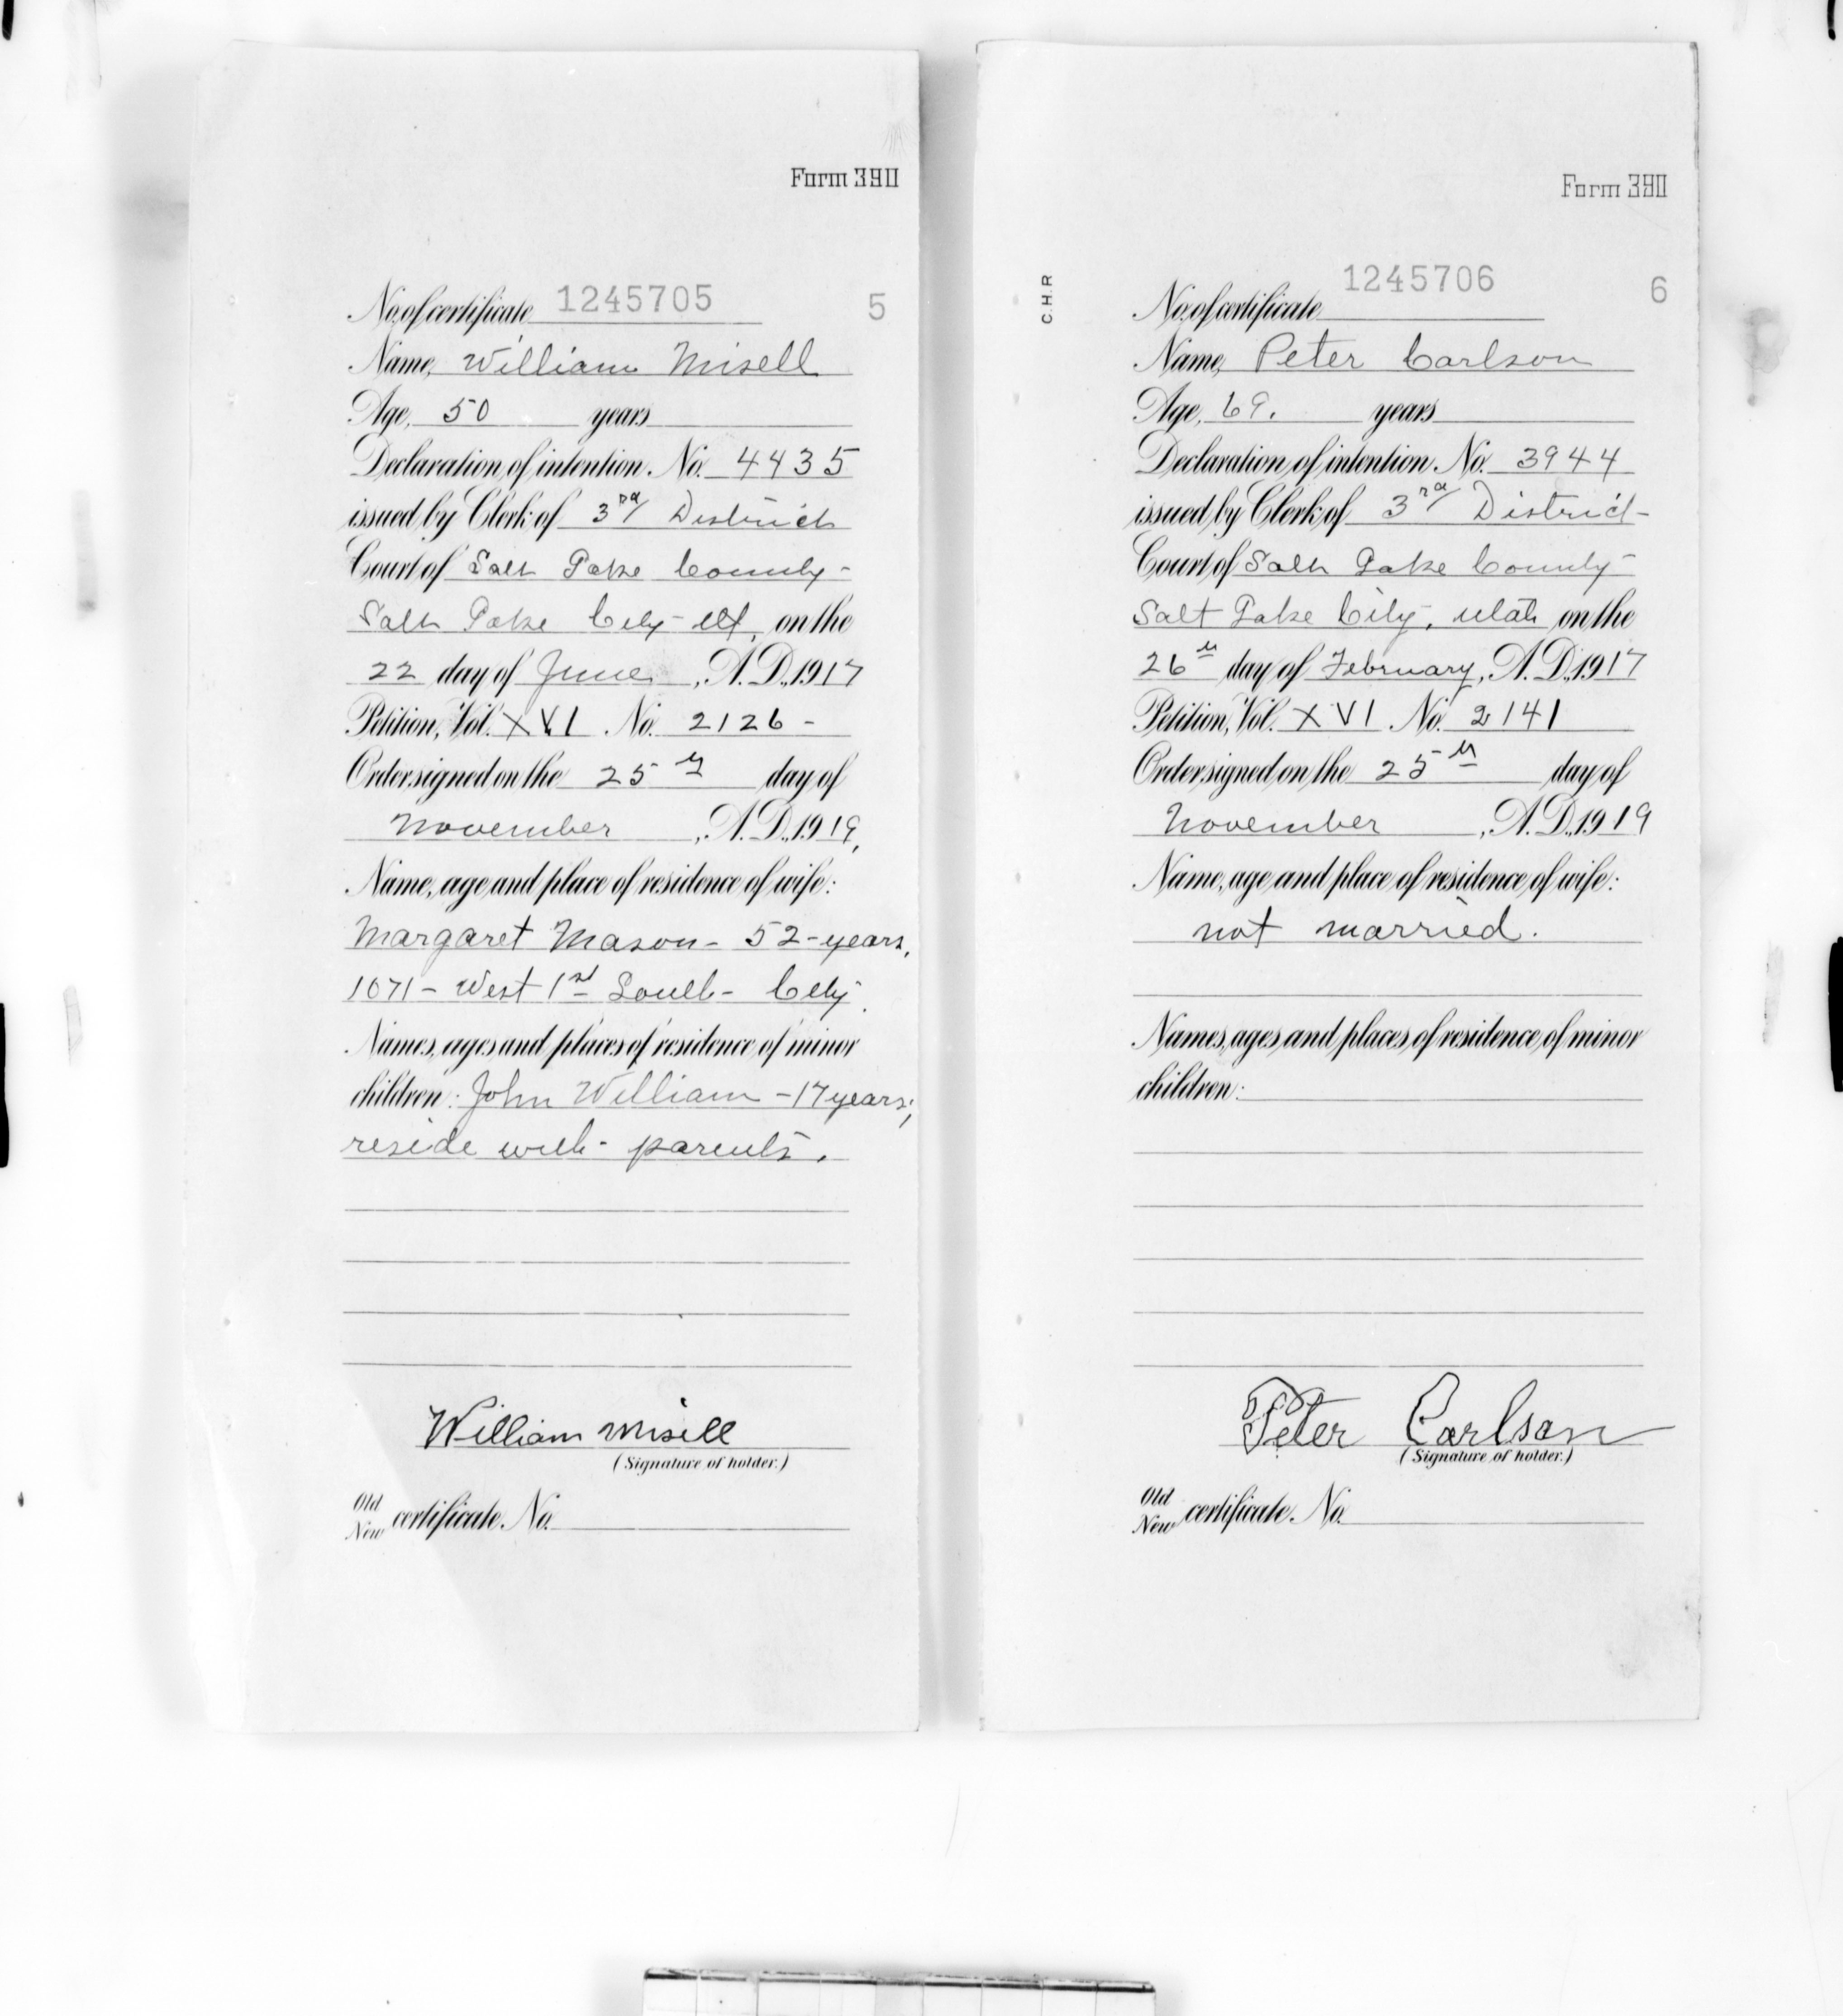 Form 390
No. of certificate 1245705 5
Name, William Misell
Age, 50 years
Declaration of intention No. 4435
issued by Clerk of 3rd District
Court of Salt Lake County -
Salt Lake City - Ut, on the
22 day of June, A.D. 1917
Petition, Vol. XVI No. 2126 -
Order signed on the 25th day of
November, A.D. 1919,
Name, age and place of residence of wife:
Margaret Mason - 52 - years,
1071 - West 1st South - City.
Names, ages and places of residence of minor
children: John William - 17 years;
reside with - parents.
William Misell
(Signature of holder.)
Old
New certificate No.
C.H.R
Form 390
No. of certificate 1245706 6
Name, Peter Carlson
Age, 69. years
Declaration of intention No. 3944
issued by Clerk of 3rd District -
Court of Salt Lake County -
Salt Lake City, Utah on the
26th day of February, A.D. 1917
Petition, Vol. XVI No. 2141
Order signed on the 25th day of
November, A.D. 1919
Name, age and place of residence of wife:
not married.
Names, ages and places of residence of minor
children:
Peter Carlson
(Signature of holder.)
Old
New certificate No.